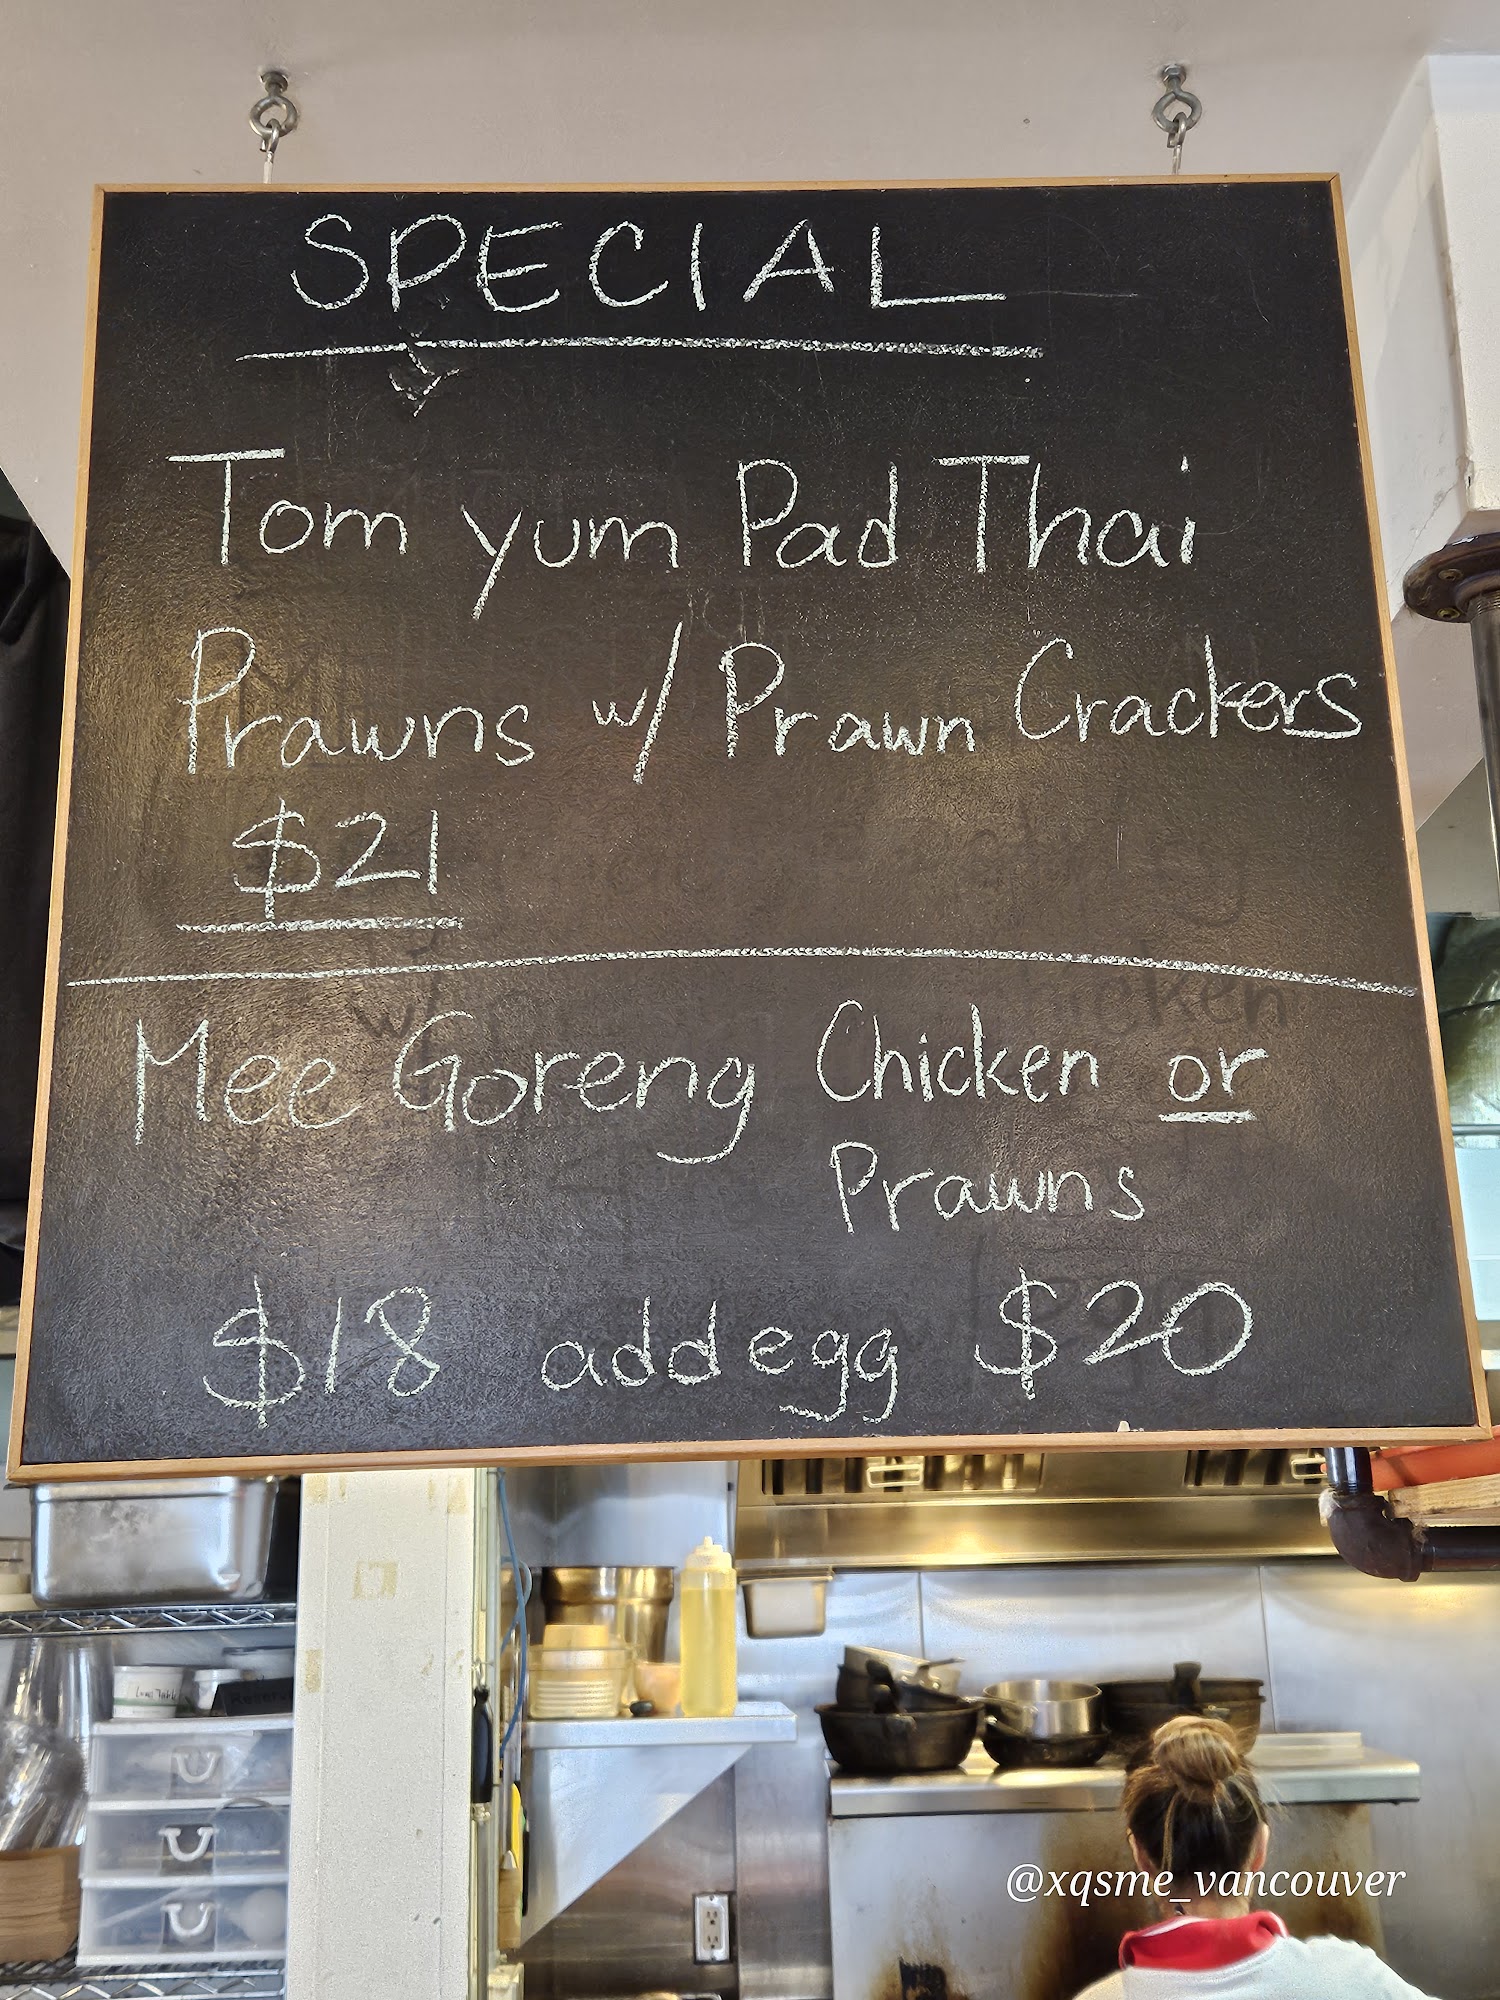 SPECIAL
Tom yum Pad Thai
Prawns w/ Prawn Crackers
$21
Mee Goreng Chicken or
Prawns
$18 add egg $20
@xqsme_vancouver